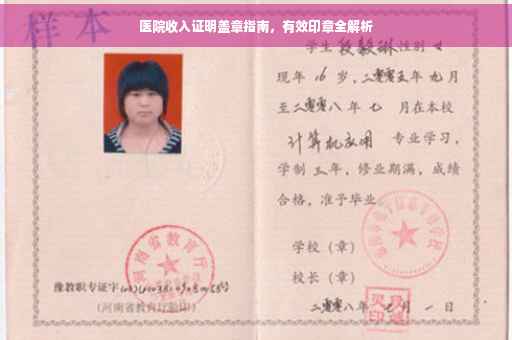 医院收入证明盖章指南，有效印章全解析
样本
学生段毅琳性别女
现年16岁，二零零五年九月
至二零零八年七月在本校
计算机应用 专业学习，
学制三年，修业期满，成绩
合格，准予毕业
学校（章）
校长（章）
二零零八年七月一日
河南省教育厅
豫教职专证字
（河南省教育厅验印）